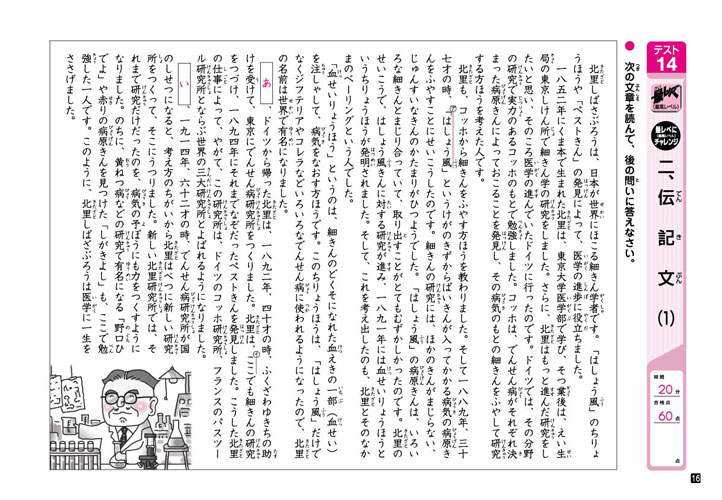 テスト
14
最レベ
(最高レベル)
最レベに
(最高レベル)
チャレンジ
二、伝記文(1)
時間
20分
合格点
60点
点
● 次の文章を読んで、後の問いに答えなさい。
北里しばさぶろうは、日本が世界にほこる細きん学者です。「はしょう風」のちりょ
うほうや「ペストきん」の発見によって、医学の進歩に役立ちました。
一八五二年にくま本で生まれた北里は、東京大学医学部で学び、そつ業後は、えい生
局の東京しけん所で細きん学の研究をしました。さらに、北里はもっと進んだ研究をし
たいと思い、そのころ医学の進んでいたドイツに行ったのです。ドイツでは、その分野
の研究で実力のあるコッホのもとで勉強しました。コッホは、でんせん病がそれぞれ決
まった病原きんによっておこることを発見し、その病気のもとの細きんをふやして研究
する方ほうを考えた人です。
北里も、コッホから細きんをふやす方ほうを教わりました。そして一八八九年、三十
七才の時、「はしょう風」というけがのきずからばいきんが入ってかかる病気の病原き
んをふやすことにせいこうしたのです。細きんの研究には、ほかのきんがまじらない、
じゅんすいなきんのかたまりがひつようでした。「はしょう風」の病原きんは、いろい
ろな細きんとまじり合っていて、取り出すことがとてもむずかしかったのです。北里の
せいこうで、はしょう風きんに対する研究が進み、一八九一年には血せいりょうほうと
いうちりょうほうが発明されました。そして、これを考え出したのも、北里とそのなか
まのベーリングという人でした。
「血せいりょうほう」というのは、細きんのどくそになれた血えきの一部(血せい)
を注しゃして、病気をなおす方ほうです。このちりょうほうは、「はしょう風」だけで
なくジフテリアやコレラなどいろいろなでんせん病に使われるようになったので、北里
の名前は世界で有名になりました。
あ、ドイツから帰った北里は、一八九二年、四十才の時、ふくざわゆきちの助
けを受けて、東京にでんせん病研究所をつくりました。北里は、ここでも細きんの研究
をつづけ、一八九四年にそれまでなぞだったペストきんを発見しました。こうした北里
の仕事によって、やがて、この研究所は、ドイツのコッホ研究所、フランスのパスツー
ル研究所とならぶ世界の三大研究所とよばれるようになりました。
い、一九一四年、六十二才の時、でんせん病研究所が国
のしせつになると、考え方のちがいから北里はべつに新しい研究
所をつくって、そこにうつりました。新しい北里研究所では、そ
れまで研究だけだったのを、病気の予ぼうにも力をつくすように
なりました。のちに、黄ねつ病などの研究で有名になる「野口ひ
でよ」や赤りの病原きんを見つけた「しがきよし」も、ここで勉
強した一人です。このように、北里しばさぶろうは医学に一生を
ささげました。
16